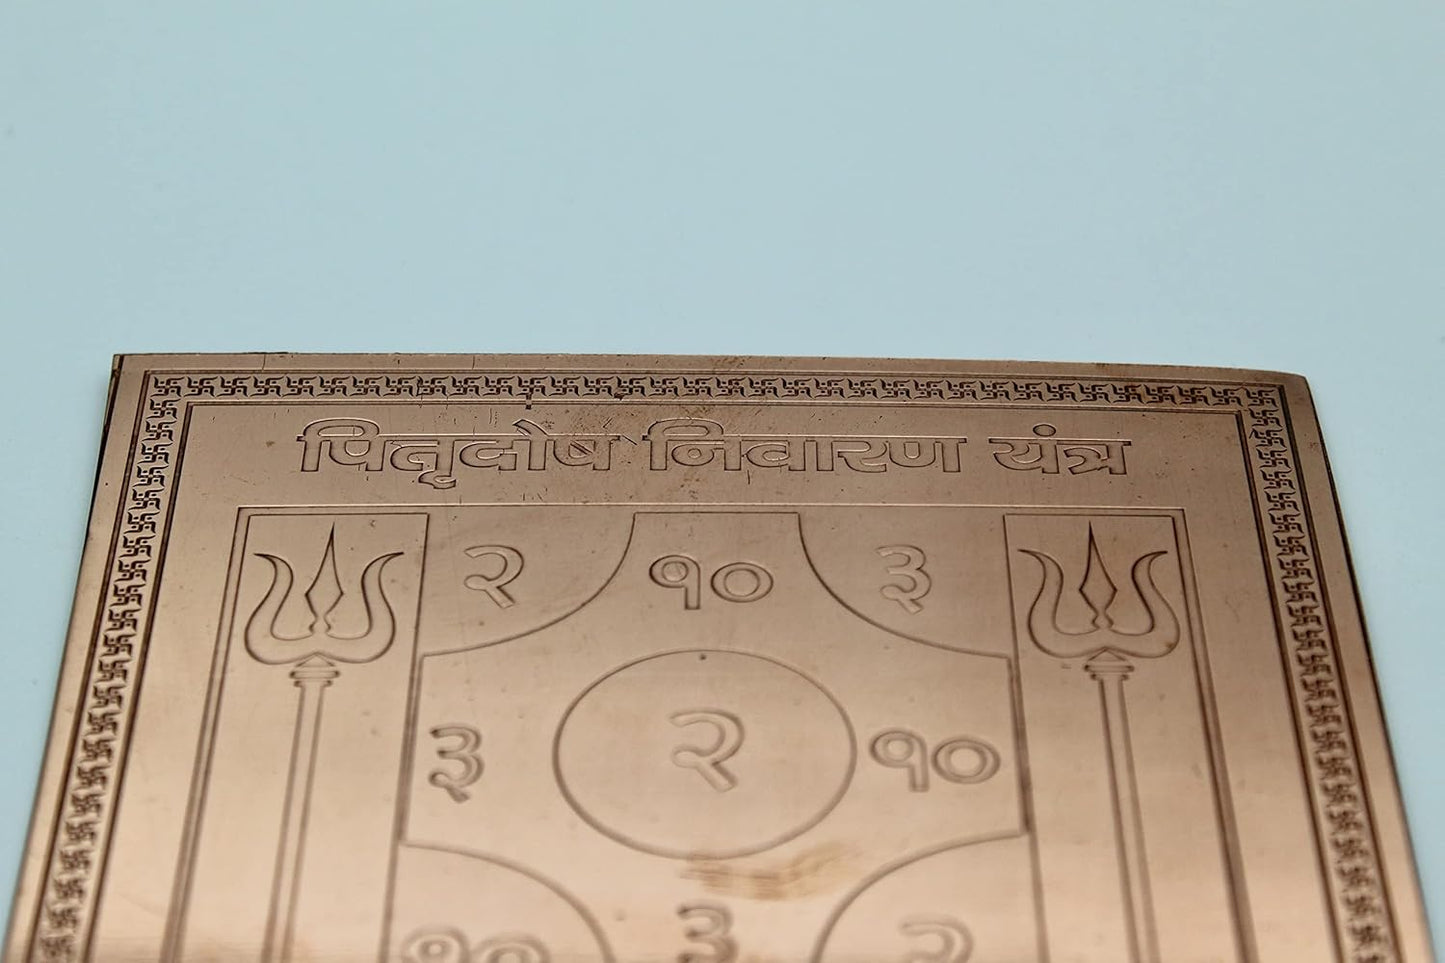 पितृदोष निवारण यंत्र
२ १० ३
३ २ १०
१० ३ २